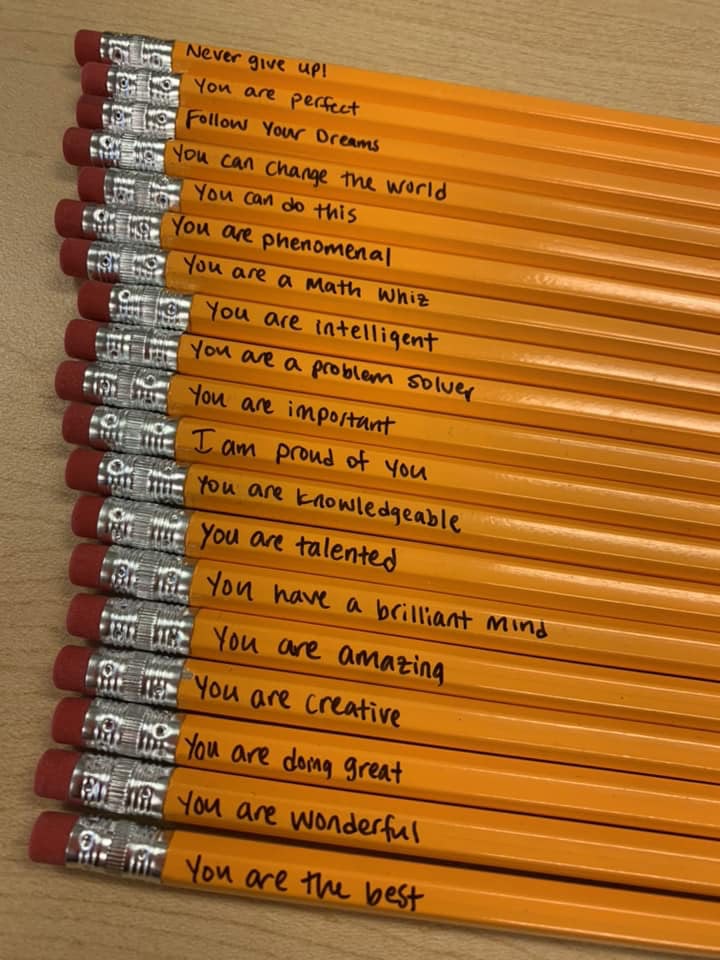 Never give up!
You are perfect
Follow Your Dreams
You can change the world
You can do this
You are phenomenal
You are a Math Whiz
You are intelligent
You are a problem solver
You are important
I am proud of you
You are knowledgeable
You are talented
You have a brilliant mind
You are amazing
You are creative
You are doing great
You are wonderful
You are the best